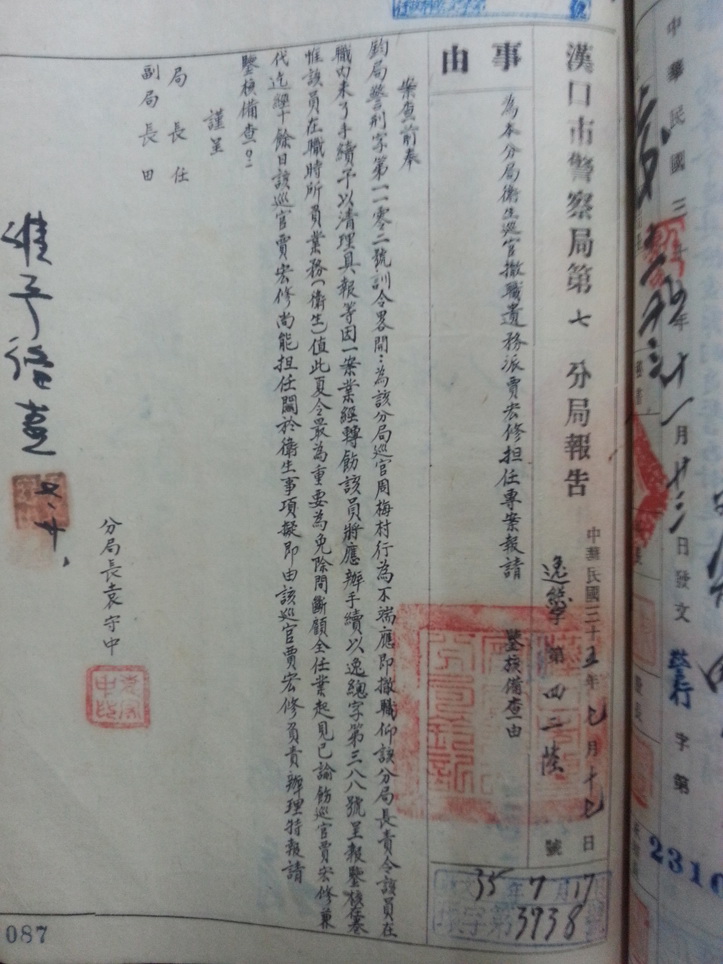 漢口市警察局第七分局報告
中華民國三十五年七月十七日
逸總字第四二陸號
事由
為本分局衛生巡官撤職遺務派賈宏修担任專案報請　鑒核備查由
35年7月17
字第3738號
案查前奉
鈞局警刑字第一一零二號訓令畧開：為該分局巡官周梅村行為不端應即撤職仰該分局長責令該員在
職内未了手續予以清理具報等因一案業經轉飭該員將應辦手續以逸總字第三八八號呈報鑒核在案
惟該員在職時所負業務（衛生）值此夏令最為重要為免除間斷顧全任業起見已諭飭巡官賈宏修兼
代迄經十餘日該巡官賈宏修尚能担任關於衛生事項擬即由該巡官賈宏修負責辦理特報請
鑒核備查。
謹呈
局長任
副局長田
分局長袁守中
准予備查
七、廿、
087
中華民國三十年十一月廿三日發文
字第
2310